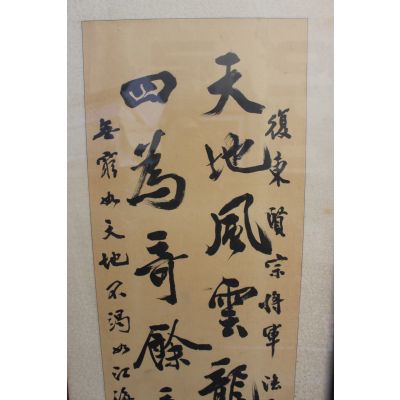 復東賢宗將軍法
天地風雲龍
四為奇餘
無窮如天地不渴如江海